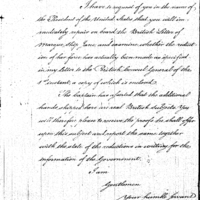 I have to request of you in the name of
the President of the United States that you will im-
mediately repair on board the British Letter of
Marque, ship Jane, and examine whether the reduct-
ion of her force has actually been made as specified
in my letter to the British Consul General of the
instant, a copy of which is enclosed.
The Captain has asserted that the additional
hands shipped here are real British subjects. You
will therefore please to receive the proofs he shall offer
upon this subject and report the same together
with the state of the reductions in writing for the
information of the Government.
I am
Gentlemen
Your humble servant